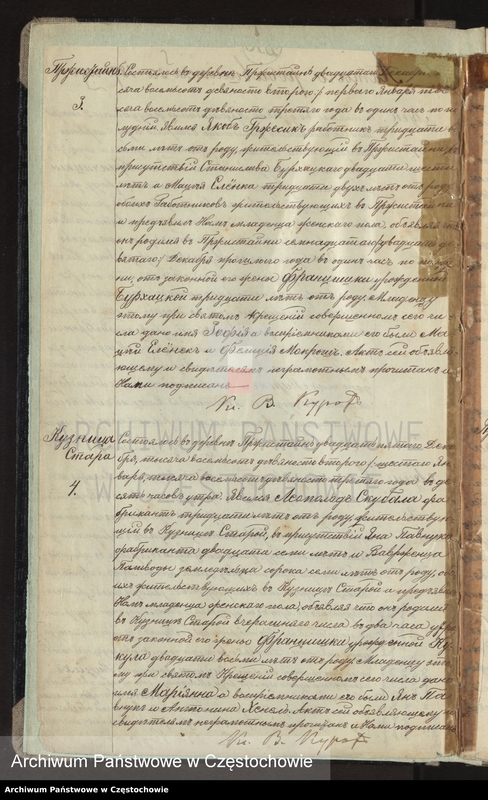 Пржистайнь
3.
Состоялось въ деревнѣ Пржистайнѣ двадцатаго Декабря
сяча восемьсотъ девяносто втораго / перваго Января тыся
восемьсотъ девяносто третяго года въ одинъ часъ по по
лудни. Явился Якобъ Гржесикъ работникъ тридцати
семи лѣтъ отъ роду жительствующій въ Пржистайни въ
присутствіи Станислава двадцати шести
лѣтъ и Мацея Еленка тридцати двухъ лѣтъ отъ роду
обоихъ работниковъ жительствующихъ въ Пржистайни
и предъявилъ Намъ младенца женскаго пола, объявляя что
онъ родился въ Пржистайни семнадцатаго / двадцать де
вятаго / Декабря прошлаго года въ одинъ часъ по полуд
ни, отъ законной его жены Францишки урожденной
тридцати лѣтъ отъ роду. Младенцу
этому при святомъ крещеніи совершенномъ сего чи
сла дано имя Зофія а воспріемниками его были Ма
цей Еленекъ и Фелиція Мокрошъ. Актъ сей объявля
ющему и свидѣтелямъ неграмотнымъ прочитанъ и
Нами подписанъ
Кс. В. Куроф
Кузница
Стара
4.
Состоялось въ деревнѣ Пржистайнѣ двадцать пятаго Дека
бря, тысяча восемьсотъ девяносто втораго / шестаго Ян
варя, тысяча восемьсотъ девяносто третяго года въ де
сять часовъ утра. Явился Леопольдъ Скубала фа
брикантъ тридцати лѣтъ отъ роду, жительствую
щій въ Кузницѣ Старой, въ присутствіи Яна Павлука
фабриканта двадцати семи лѣтъ и Вавржинца
земледѣльца сорока семи лѣтъ отъ роду, обо
ихъ жительствующихъ въ Кузницѣ Старой и предъявилъ
Намъ младенца женскаго пола, объявляя что онъ родился
въ Кузницѣ Старой вчерашняго числа въ два часа утра
отъ законной его жены Францишки урожденной Ку
кула двадцати восьми лѣтъ отъ роду. Младенцу это
му при святомъ Крещеніи совершенномъ сего числа дано
имя Маріянна а воспріемниками его были Янъ Па
влукъ и Антонина. Актъ сей объявляющему
свидѣтелямъ неграмотнымъ прочитанъ и Нами подписанъ
Кс. В. Куроф
ARCHIWUM PAŃSTWOWE
W CZĘSTOCHOWIE
Archiwum Państwowe w Częstochowie
Archiwum Państwowe w Częstochowie